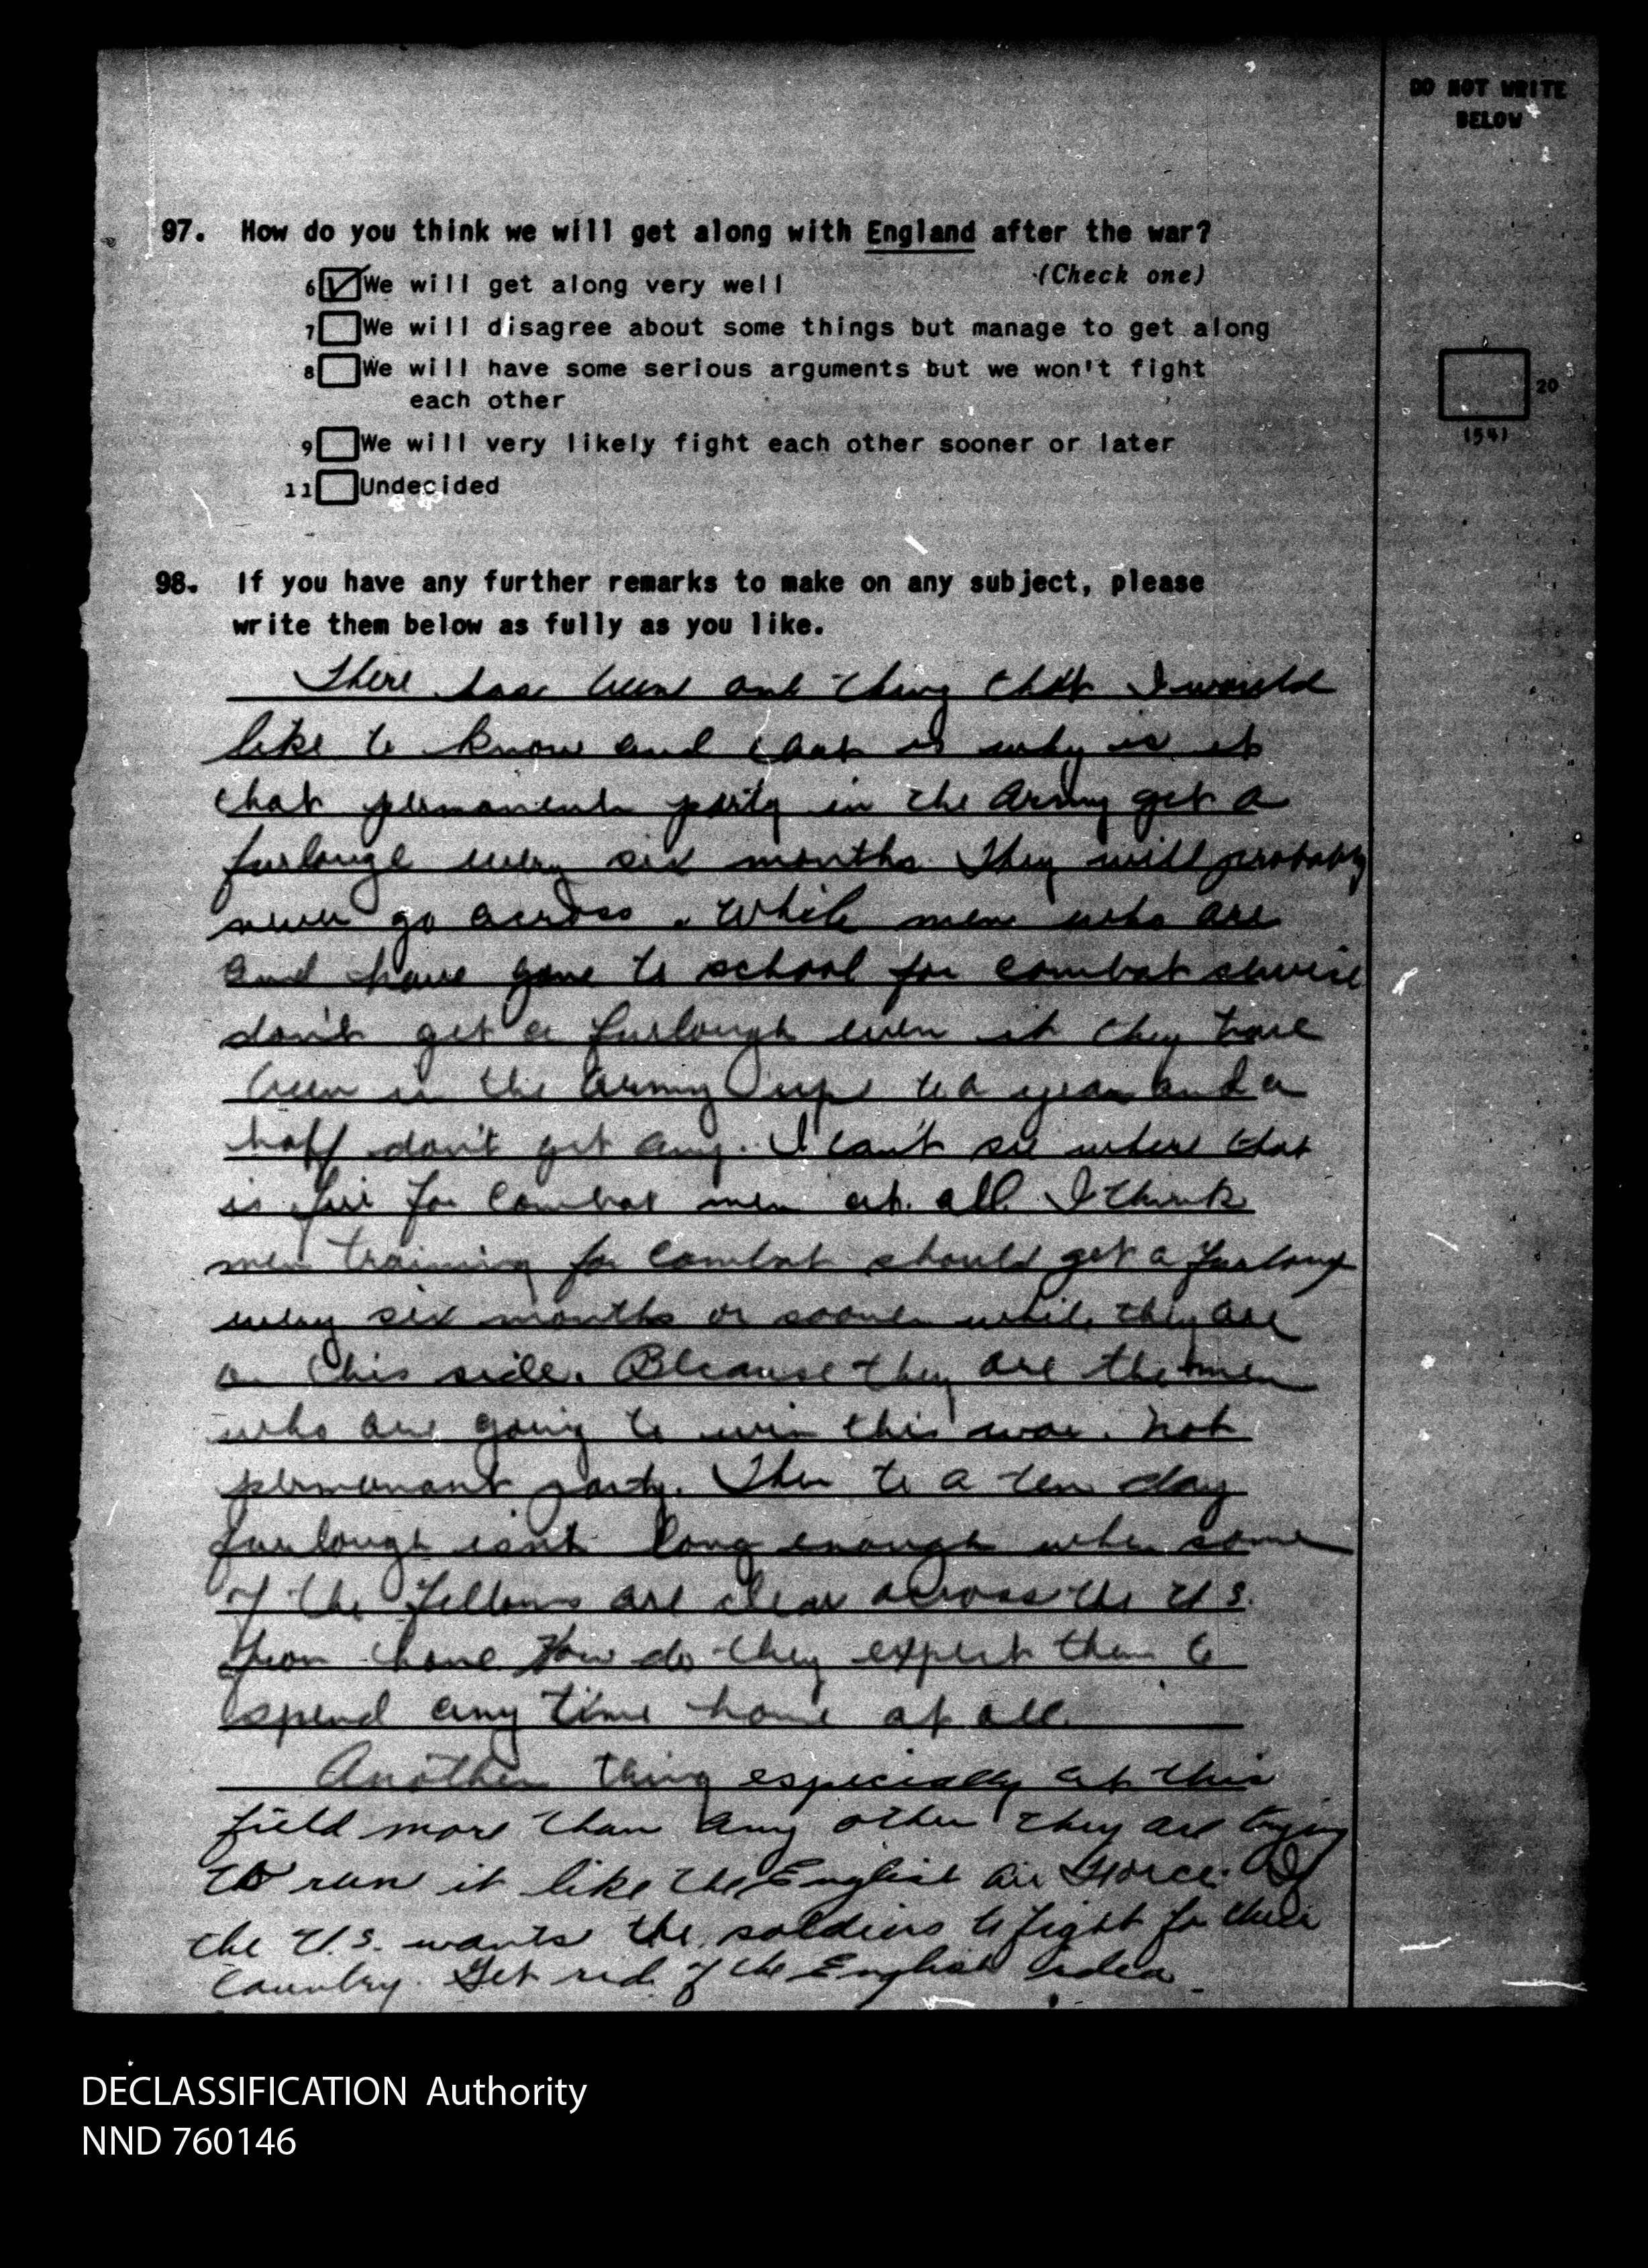 DO NOT WRITE
BELOW
97. How do you think we will get along with England after the war?
(Check one)
6 We will get along very well
7 We will disagree about some things but manage to get along
8 We will have some serious arguments but we won't fight
each other
9 We will very likely fight each other sooner or later
11 Undecided
20
(54)
98. If you have any further remarks to make on any subject, please
write them below as fully as you like.
There has been one thing that I would
like to know and that is why is it
that permanent party in the Army get a
furlouge every six months. They will probably
never go across. While men who are
and have gone to school for combat
don't get a furlough even it they have
been in the Army up to a year and a
half don't get any. I can't see where that
is fair for combat men at all. I think
men training for combat should get a
every six months or sooner while they are
on this side. Because they are the men
who are going to win this war. Not
permanant party. Then to a ten day
furlough isn't long enough when some
of the fellows are clear across the U.S.
from home. How do they expect them to
spend any time home at all.
Another thing especially at this
field more than any other they are trying
to run it like the English Air Force. If
the U.S. wants the soldiers to fight for their
country. Get rid of the English idea.
DECLASSIFICATION Authority
NND 760146